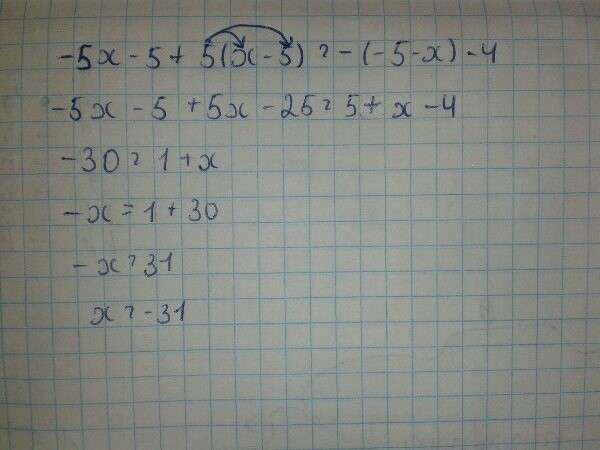 -5x - 5 + 5(x - 5) = -(-5-x) - 4
-5x - 5 + 5x - 25 = 5 + x - 4
-30 = 1 + x
-x = 1 + 30
-x = 31
x = -31